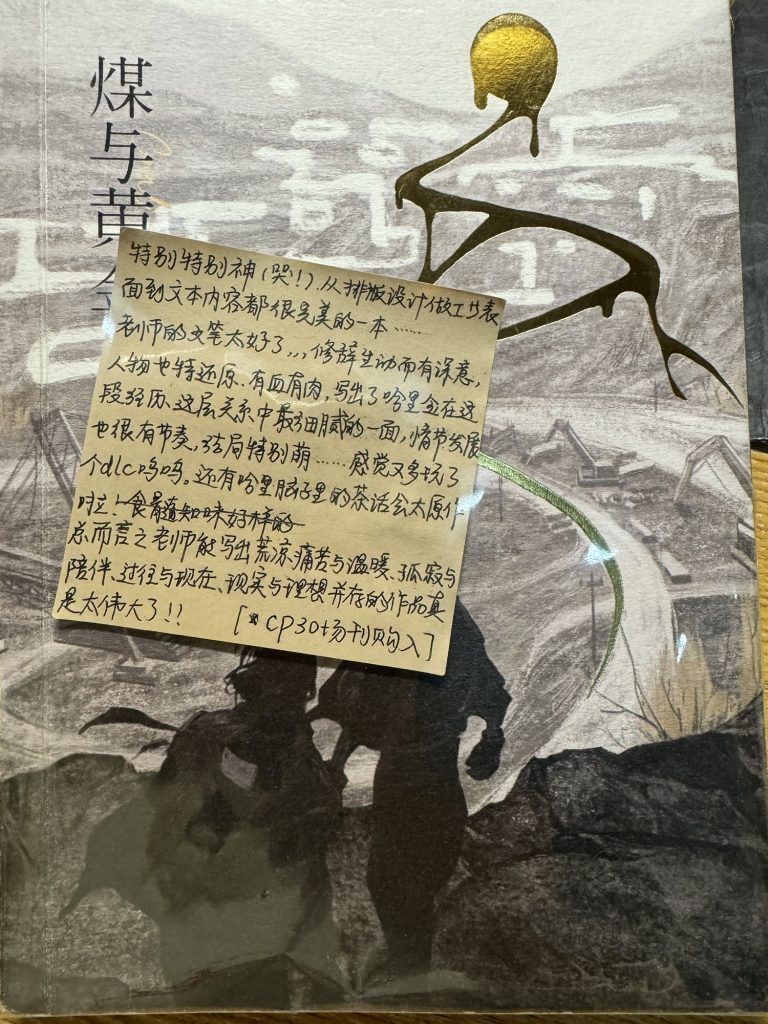 煤与黄
特别特别神(哭!).从排版设计做工书表
面到文本内容都很完美的一本……
老师的文笔太好了,,,修辞生动而有深意,
人物也特还原、有血有肉,写出了哈里金在这
段经历、这层关系中最细腻的一面,情节发展
也很有节奏,结局特别萌……感觉又多玩了
个dlc呜呜。还有哈里脑仔里的茶话会太原作
啦!食髓知味好样的
总而言之老师能写出荒凉痛苦与温暖、孤寂与
陪伴、过往与现在、现实与理想并存的作品真
是太伟大了!!
[*CP30场刊购入]